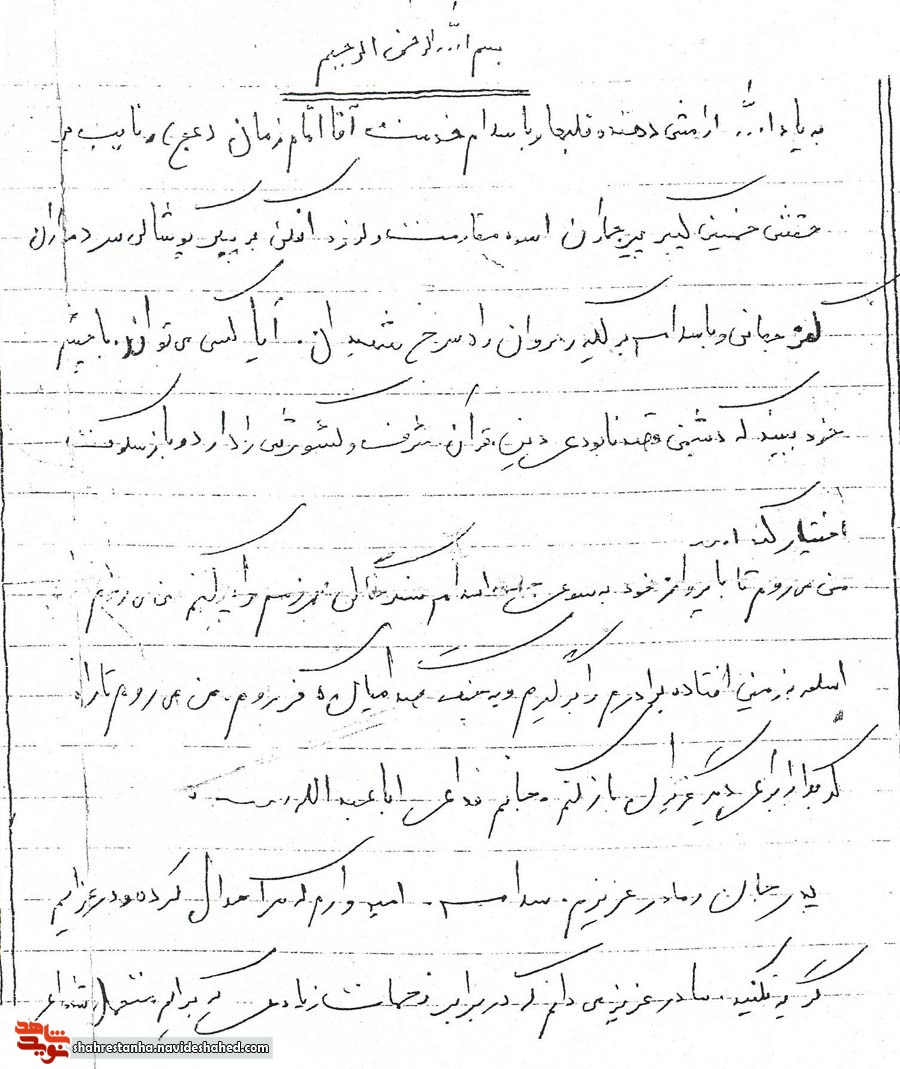 بسم الله الرحمن الرحیم
به یاد الله آرامش دهنده قلبها و با سلام خدمت آقا امام زمان (عج) و نایب بر
حقش خمینی کبیر پیر جماران اسوه مقاومت و لرزه افکن بر پیکر پوشالی سردمداران
کفر جهانی و با سلام بر کلیه رهروان راه سرخ شهیدان. آیا کسی می تواند با چشم
خود ببیند که دشمن قصد نابودی دین، قرآن، شرف و کشورش را دارد و باز سکوت
اختیار کند
من می روم تا با پرواز خود به سوی اسلام من می روم
اسلحه به زمین افتاده برادرم را برگیرم و به جنگ فرو روم. من می روم تا راه
کربلا را برای دیگر عزیزان باز کنم. جانم فدای ابا عبدالله
پدر جان و مادر عزیزم، سلام. امیدوارم که مرا حلال کرده و در عزایم
گریه نکنید. مادر عزیز می دانم که در برابر زحمات زیادی که برایم متحمل شده ای
شاهد
نوید
shahrestanha.navideshahed.com